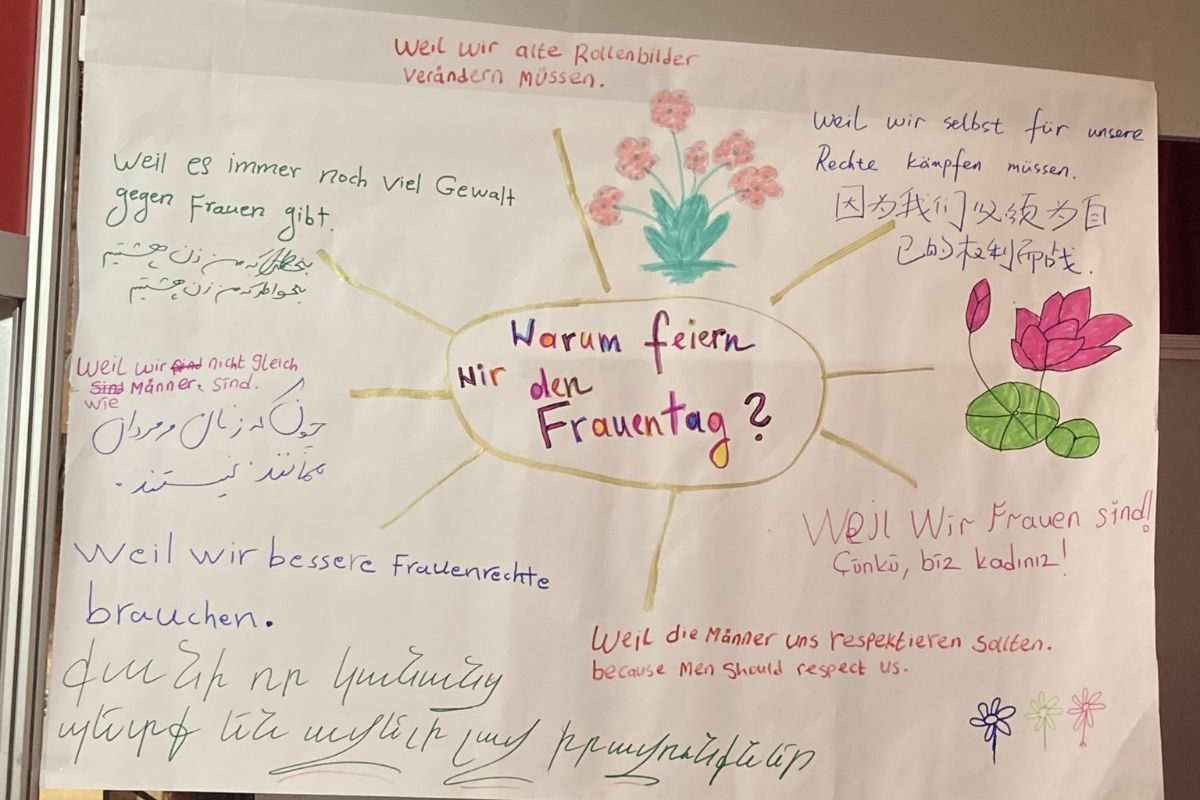 Weil wir alte Rollenbilder
verändern müssen.
Weil wir selbst für unsere
Rechte kämpfen müssen.
因为我们必须为自
己的权利而战.
Weil es immer noch viel Gewalt
gegen Frauen gibt.
بخاطر که من زن هشتیم
بخواطر که من زن هشتیم
Warum feiern
Wir den
Frauentag?
Weil wir sind nicht gleich
sind Männer. sind.
wie
چون که زنان و مردان
مانند نیستند.
Weil Wir Frauen sind!
Çünkü, biz kadınız!
Weil wir bessere Frauenrechte
brauchen.
Քանի որ կանանց
պետք են ավելի լավ իրավունքներ
Weil die Männer uns respektieren sollten.
because men should respect us.